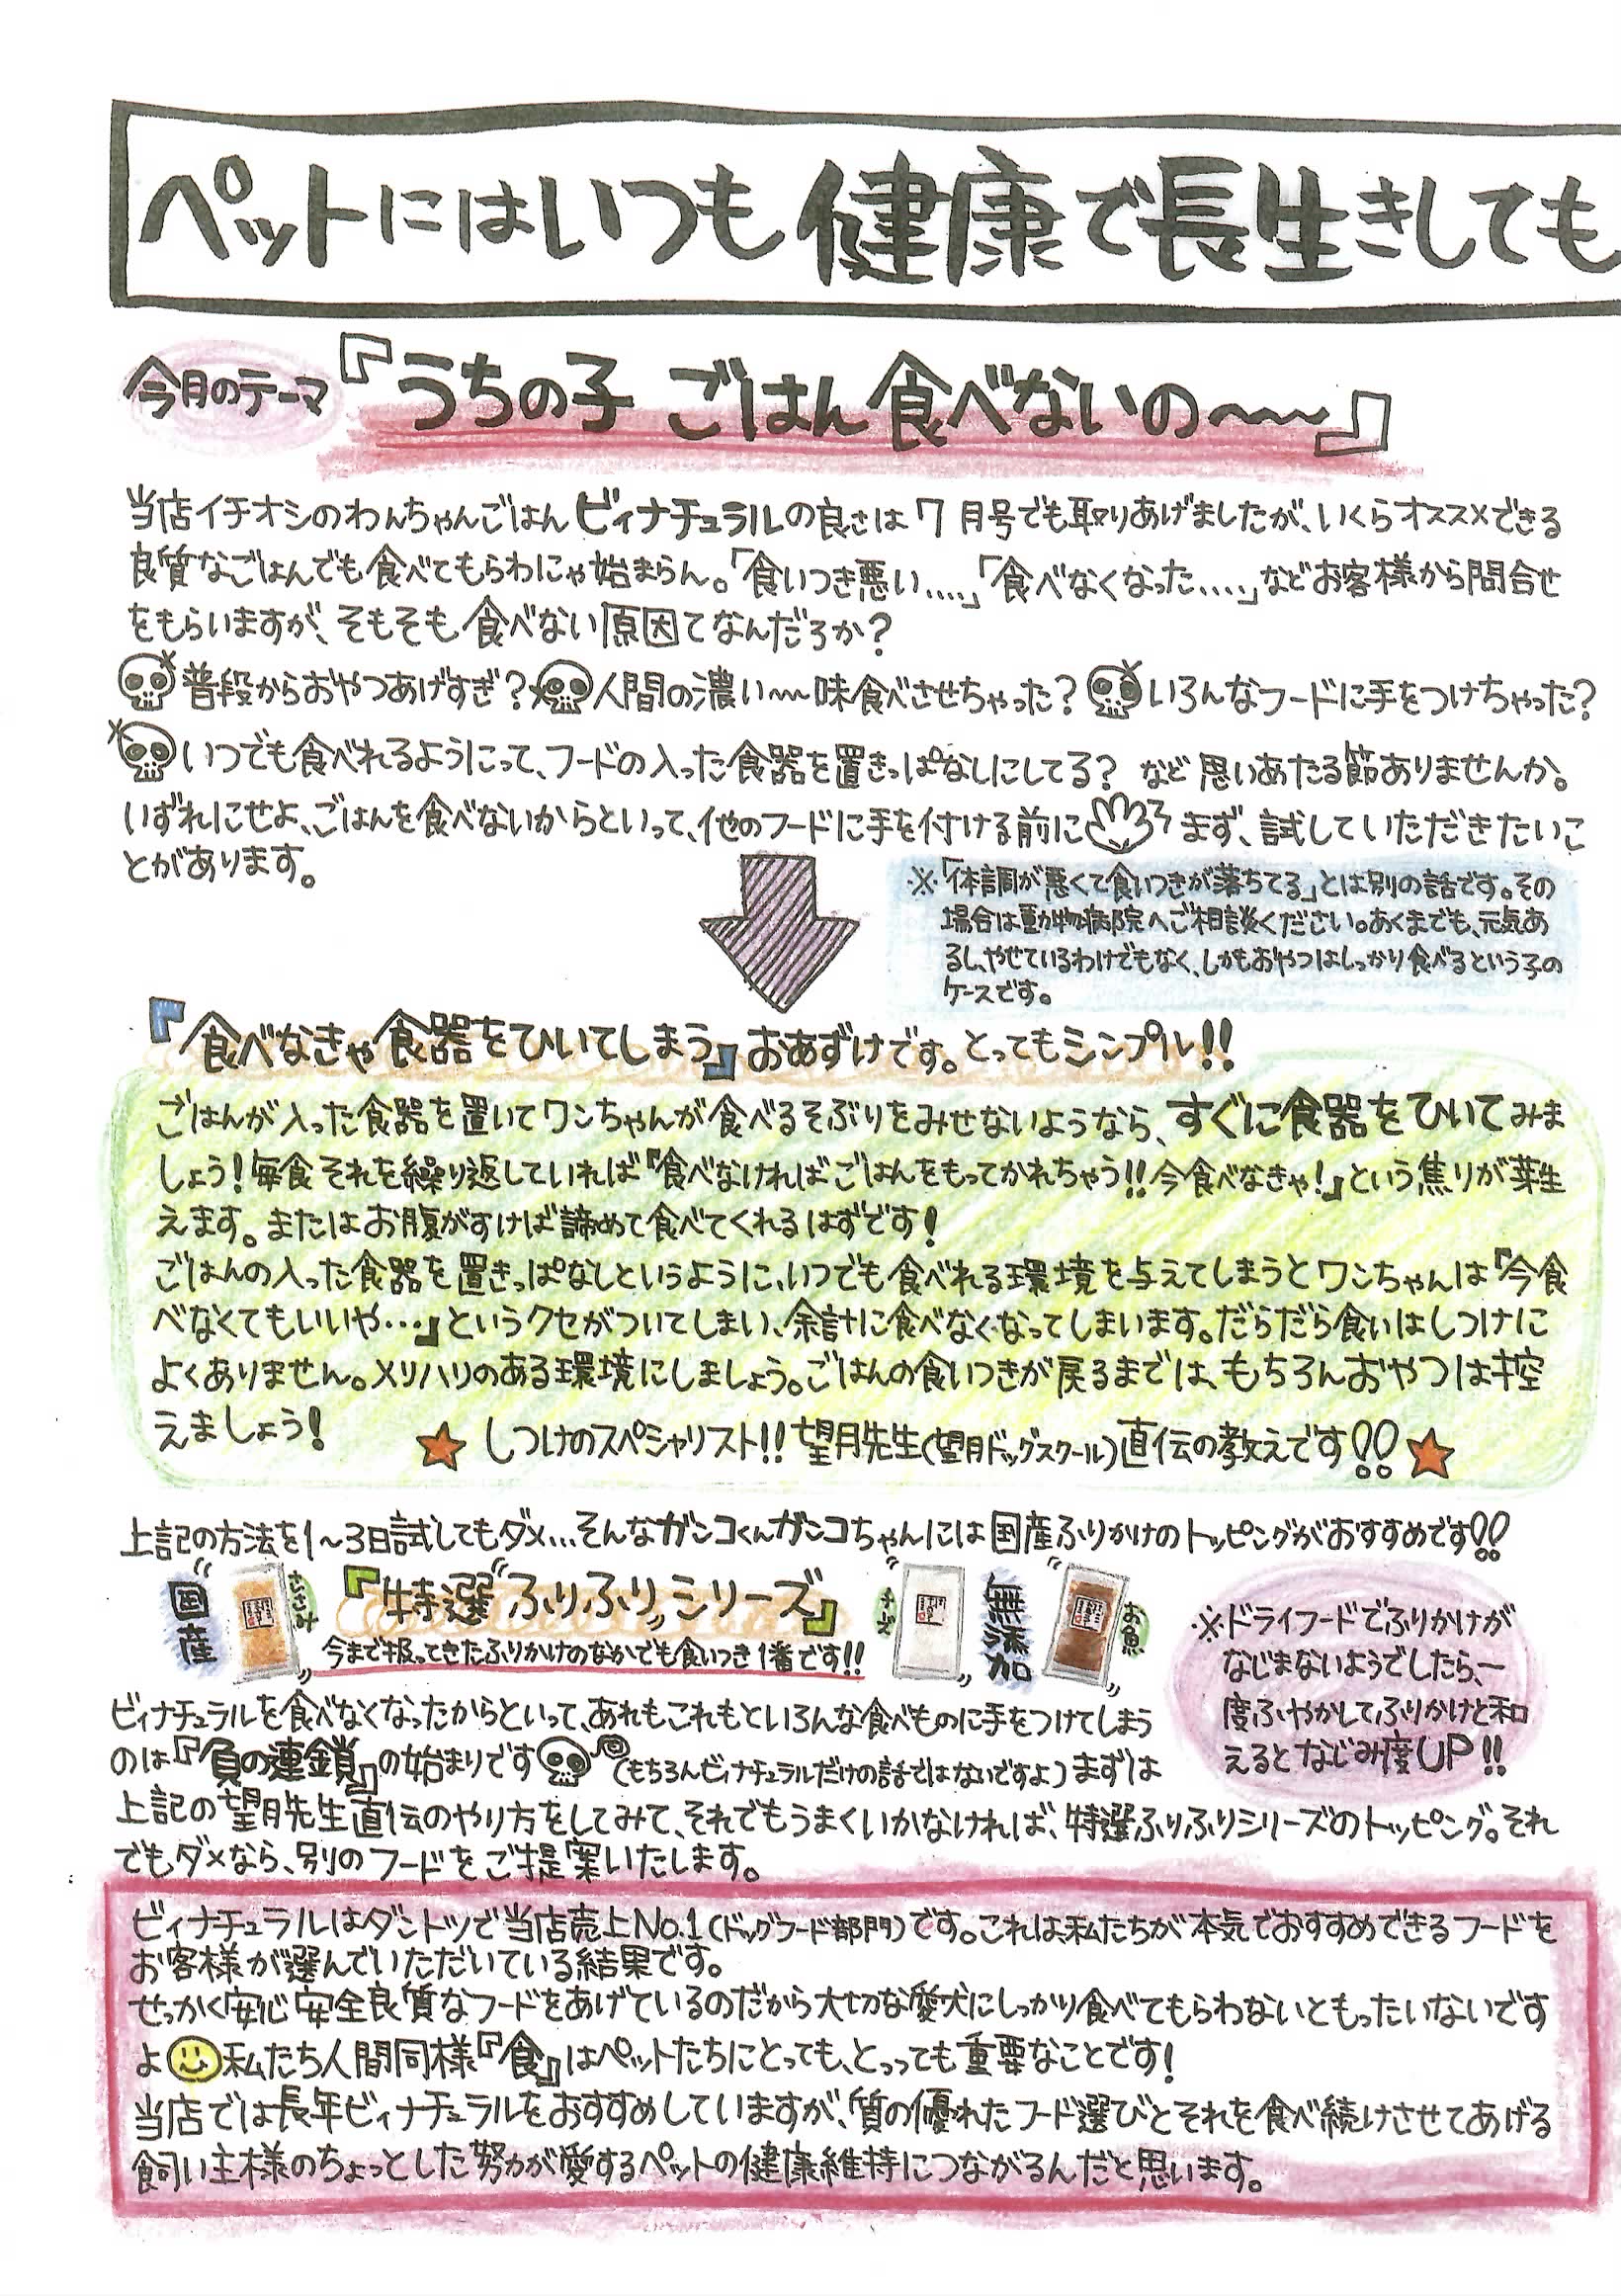 ペットにはいつも健康で長生きしても
今月のテーマ『うちの子 ごはん食べないの〜〜』
当店イチオシのわんちゃんごはんビィナチュラルの良さは7月号でも取りあげましたが、いくらオススメできる
良質なごはんでも食べてもらわにゃ始まらん。「食いつき悪い....」「食べなくなった....」などお客様から問合せ
をもらいますが、そもそも食べない原因てなんだろか?
普段からおやつあげすぎ?人間の濃い〜〜味食べさせちゃった?いろんなフードに手をつけちゃった?
いつでも食べれるようにって、フードの入った食器を置きっぱなしにしてる? など思いあたる節ありませんか。
いずれにせよ、ごはんを食べないからといって、他のフードに手を付ける前にまず、試していただきたいこ
とがあります。
※「体調が悪くて食いつきが落ちてる」とは別の話です。その
場合は動物病院へご相談ください。あくまでも、元気あ
るし、やせているわけでもなく、しかもおやつはしっかり食べるという子の
ケースです。
『食べなきゃ食器をひいてしまう』おあずけです。とってもシンプル!!
ごはんが入った食器を置いてワンちゃんが食べるそぶりをみせないようなら、すぐに食器をひいてみま
しょう!毎食それを繰り返していれば『食べなければごはんをもってかれちゃう!!今食べなきゃ!』という焦りが芽生
えます。またはお腹がすけば諦めて食べてくれるはずです!
ごはんの入った食器を置きっぱなしというように、いつでも食べれる環境を与えてしまうとワンちゃんは『今食
べなくてもいいや…』というクセがついてしまい、余計に食べなくなってしまいます。だらだら食いはしつけに
よくありません。メリハリのある環境にしましょう。ごはんの食いつきが戻るまでは、もちろんおやつは控
えましょう!
★ しつけのスペシャリスト!!望月先生(望月ドッグスクール)直伝の教えです!!★
上記の方法を1〜3日試してもダメ...そんなガンコくんガンコちゃんには国産ふりかけのトッピングがおすすめです!!
国産
ささみ
『特選"ふりふり"シリーズ』
今まで扱ってきたふりかけのなかでも食いつき1番です!!
チーズ
無添加
お魚
※ドライフードでふりかけが
なじまないようでしたら、一
度ふやかしてふりかけと和
えるとなじみ度UP!!
ビィナチュラルを食べなくなったからといって、あれもこれもといろんな食べものに手をつけてしまう
のは『負の連鎖』の始まりです(もちろんビィナチュラルだけの話ではないですよ)まずは
上記の望月先生直伝のやり方をしてみて、それでもうまくいかなければ、特選ふりふりシリーズのトッピング。それ
でもダメなら、別のフードをご提案いたします。
ビィナチュラルはダントツで当店売上No.1(ドッグフード部門)です。これは私たちが本気でおすすめできるフードを
お客様が選んでいただいている結果です。
せっかく安心安全良質なフードをあげているのだから大切な愛犬にしっかり食べてもらわないともったいないです
よ私たち人間同様『食』はペットたちにとっても、とっっても重要なことです!
当店では長年ビィナチュラルをおすすめしていますが、質の優れたフード選びとそれを食べ続けさせてあげる
飼い主様のちょっとした努力が愛するペットの健康維持につながるんだと思います。